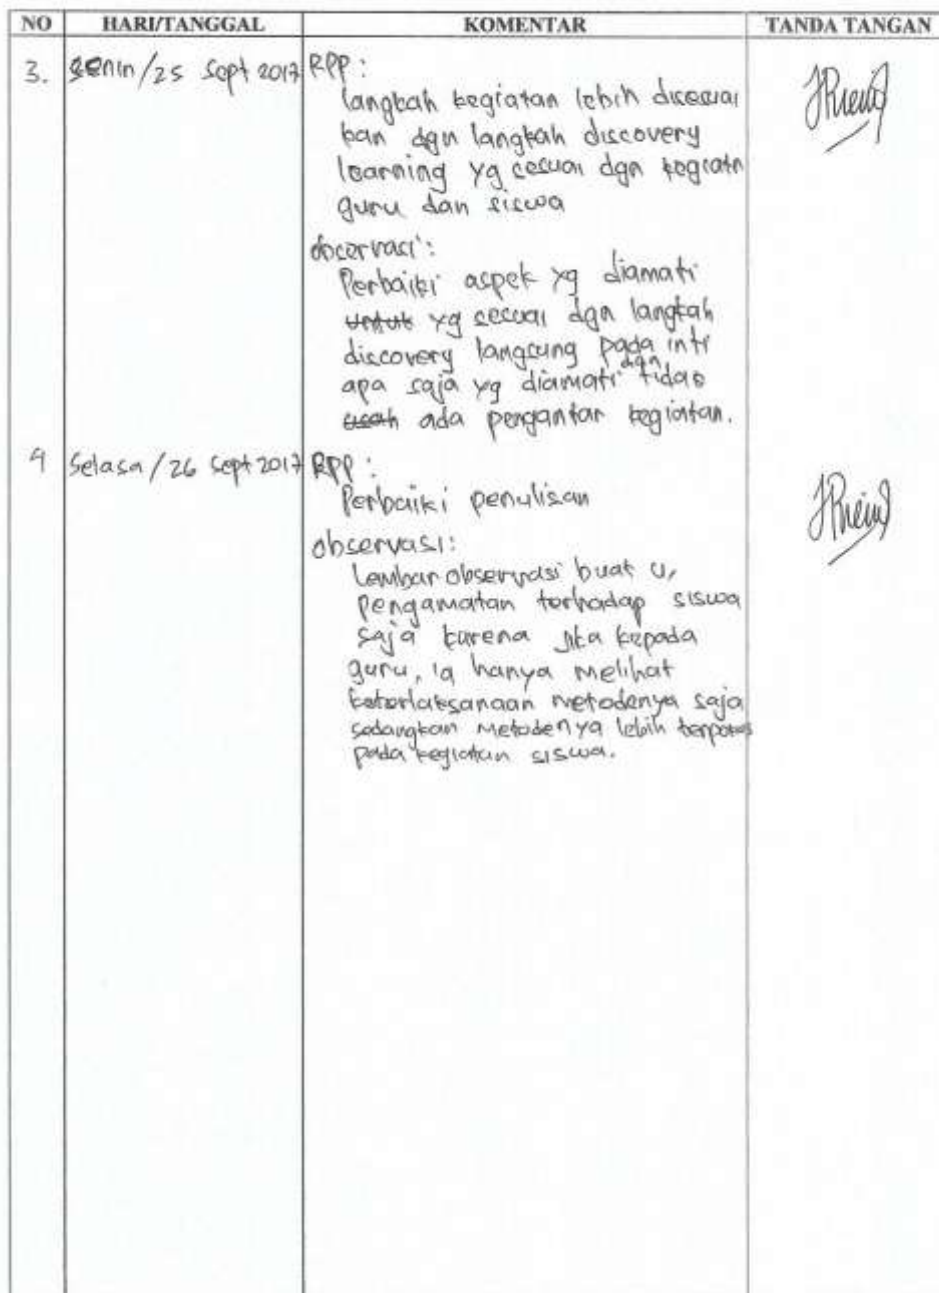 NO HARI/TANGGAL KOMENTAR TANDA TANGAN
3. Senin/25 Sept 2017 RPP :
langkah kegiatan lebih disesuai
kan dgn langkah discovery
learning yg sesuai dgn kegiatn
guru dan siswa
observasi :
Perbaiki aspek yg diamati
untuk yg sesuai dgn langkah
discovery langsung pada inti
apa saja yg diamati dgn tidak
usah ada pengantar kegiatan.
4 Selasa/26 Sept 2017 RPP :
Perbaiki penulisan
observasi:
Lembar observasi buat u,
pengamatan terhadap siswa
saja karena jika kepada
guru, ia hanya melihat
keterlaksanaan metodenya saja
sedangkan metodenya lebih
pada kegiatan siswa.